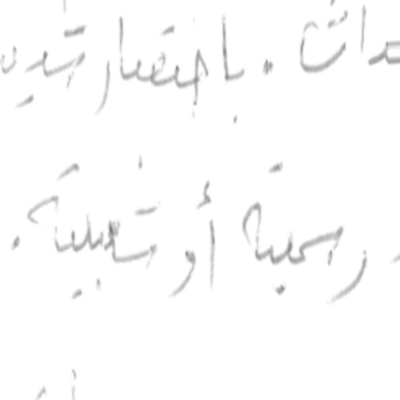 . باختصار شديد
رسمية أو شعبية.